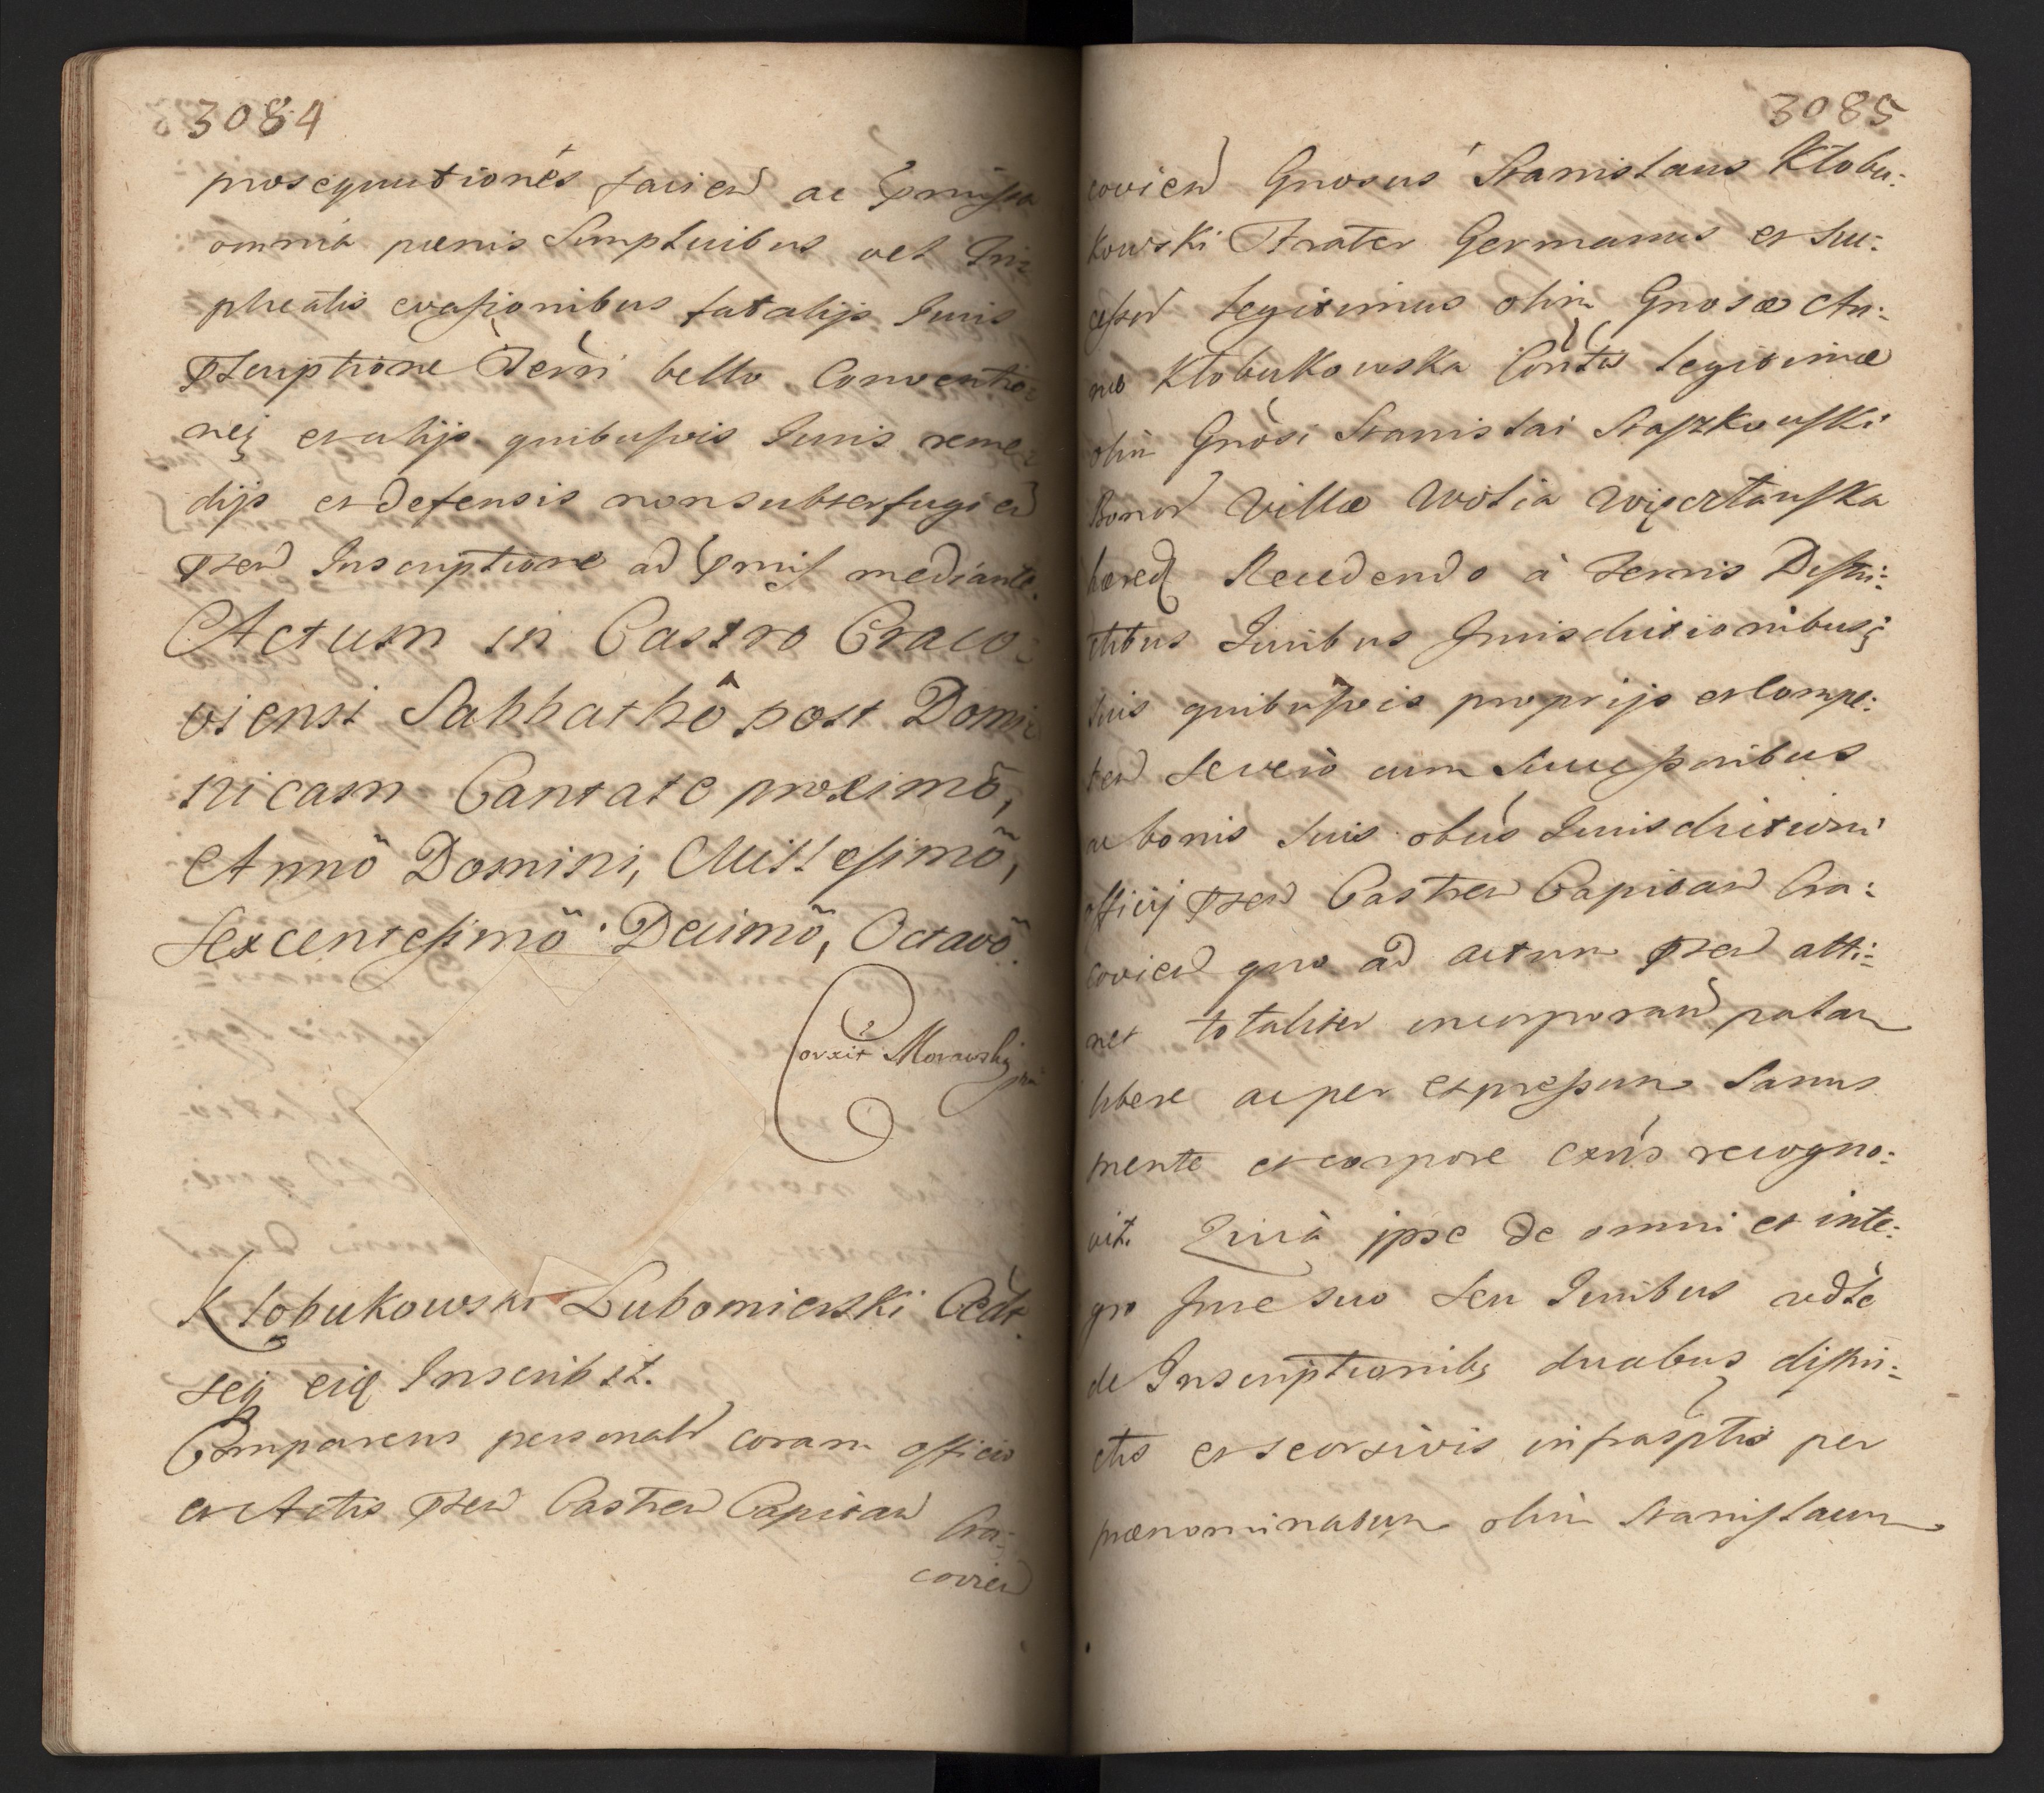 3084
prosequutionés facien ac pmissa
omnia pœnis Sumptuibus vel Tri-
plicatis evasionibus fatalijs Iuris
Pscriptione Terri bello Conventio-
neq et alijs quibusvis Iuris reme-
dijs et defensis non subterfugien
Psen Inscriptione ad pmiss mediante.
Actum in Castro Craco-
viensi Sabbathô post Domi-
nicam Cantate proximõ,
Annõ Domini, Millesimõ,
Sexcentesimõ Decimõ, Octavõ.
Corxit Morawskj
Kłobukowski Lubomierski Cedit
seq eiq Inscribit.
Comparens personalr coram officio
et Actis Psen Castren Capitan Cra-
covien
3085
covien Gnosus Stanislaus Kłobu-
kowski Frater Germanus et Suc-
cessor legitimus olim Gnosæ An-
næ Kłobukowska Contis legitimæ
olim Gnosi Stanislai Staszkowski
Bonor Villæ Wolia Więcrławska
hæred Recedendo à terris Distri-
ctibus Iuribus Iurisdictionibusq
Suis quibusvis proprijs et Compe-
ten Seveiò cum Successoribus
ac bonis Suis obús Iurisdictioni
officij Psen Castren Capitan Cra-
covien quo ad actum Psen atti-
net totaliter incorporan palam
libere ac per expressum Sanus
mente et corpore exńs recogno-
vit. Quià ipse de omni et inte-
gro Iure suo seu Iuribus rdste
de Inscriptionibq duabus distin-
ctis et seorsivis infrasptis per
prænominatum olim Stanislaum